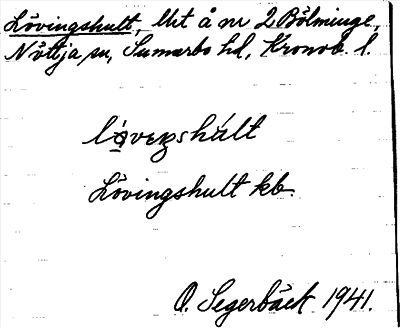 Lövingshult, Utt å nr 2 Bölminge,
Nöttja sn, Sunnerbo hd, Kronob. l.
Lövingshult kb.
O. Segerbäck 1941.